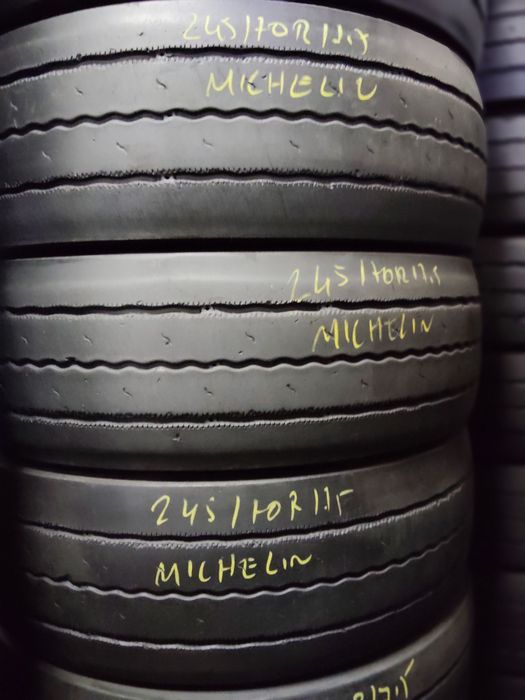 245/70R17.5
MICHELIN
245/70R17.5
MICHELIN
245/70R17.5
MICHELIN
R17.5